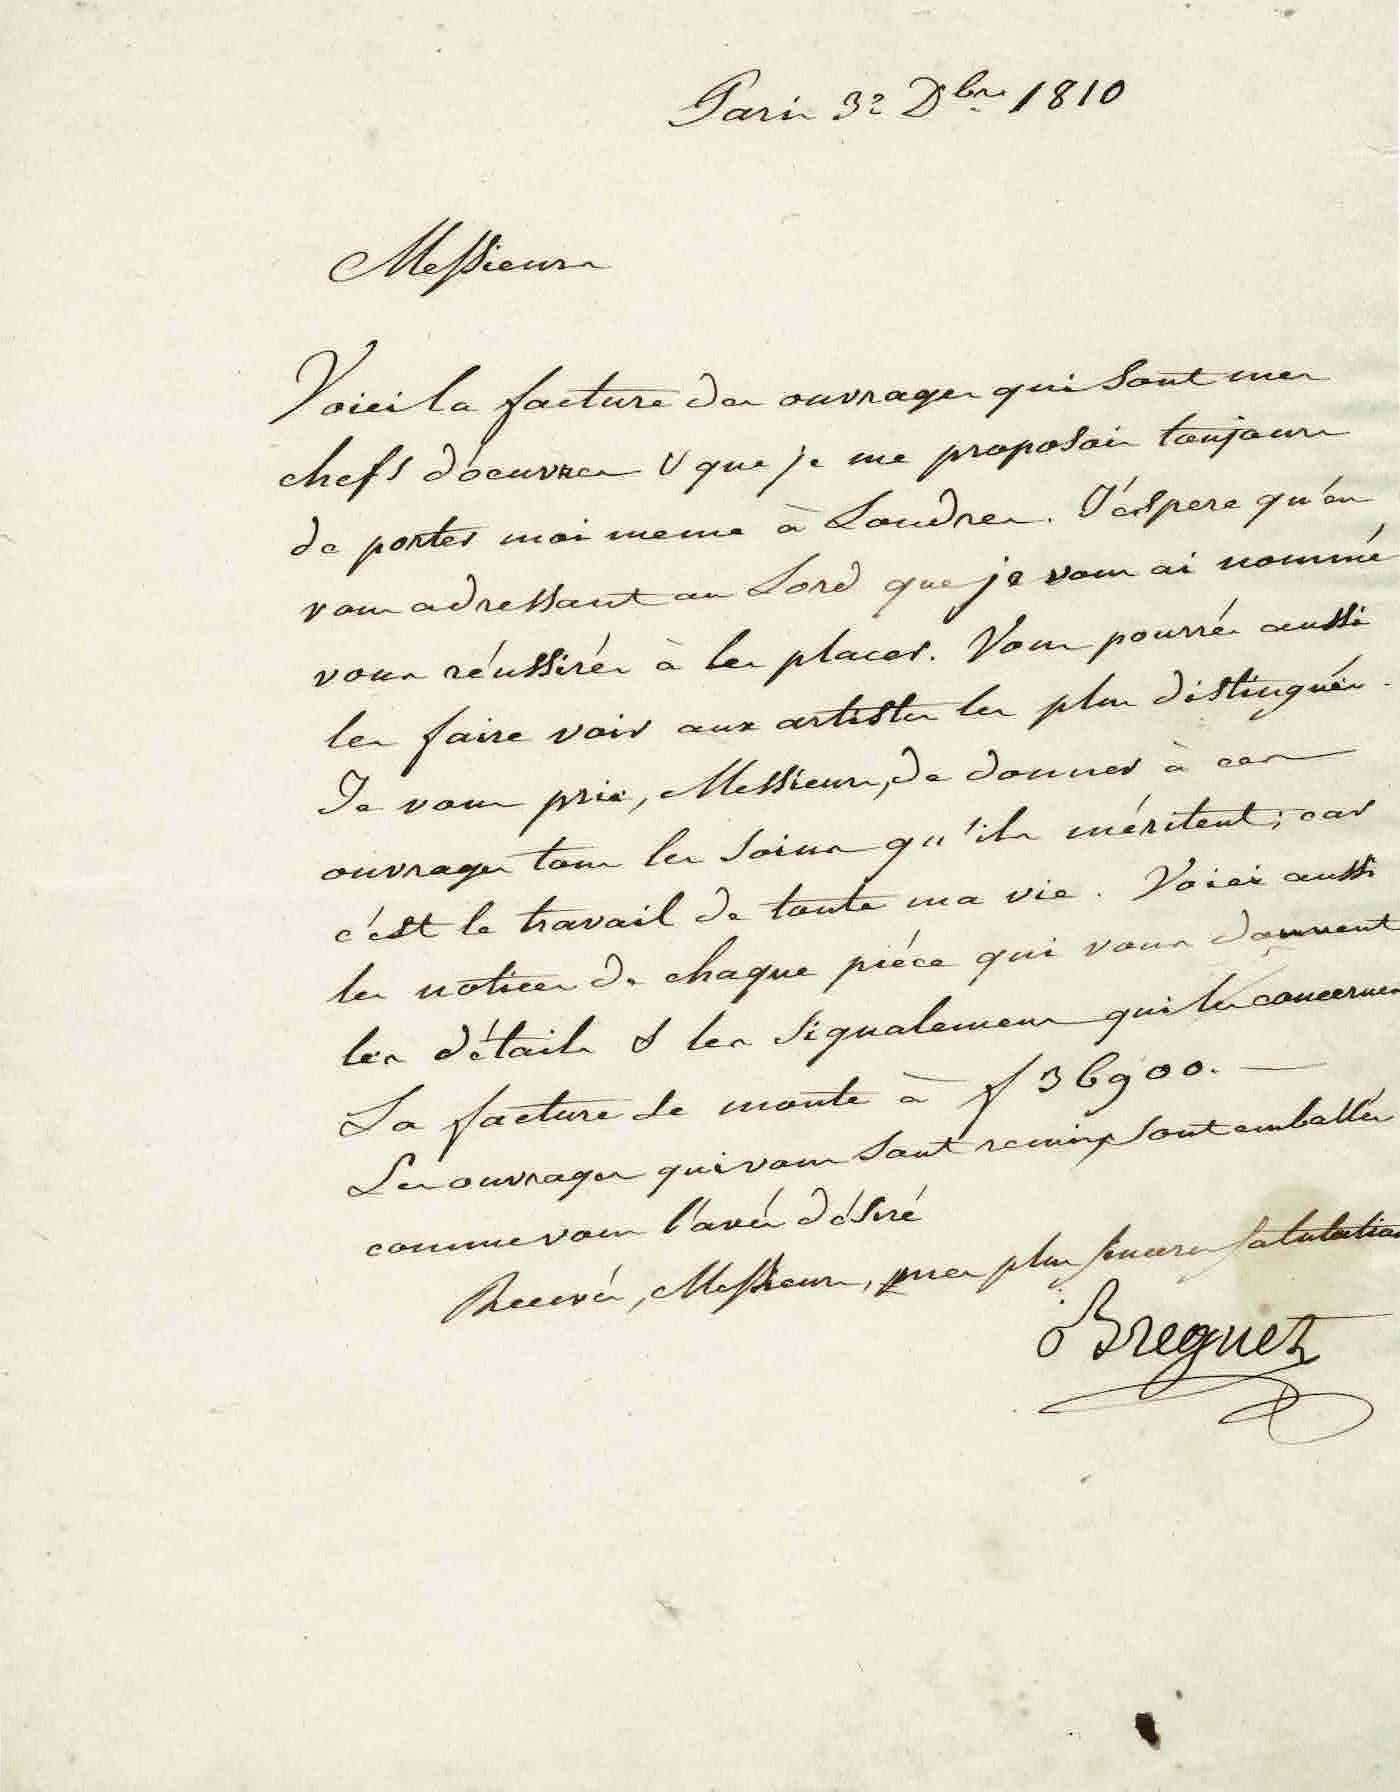 Paris 3e Dbre 1810
Messieurs
Voici la facture des ouvrages qui sont mes
chefs d'oeuvres & que je me proposais toujours
de porter moi meme à Londres. J'éspere qu'en
vous adressant au Lord que je vous ai nommé
vous réussirés à les placer. Vous pourrés aussi
les faire voir aux artistes les plus distingués.
Je vous prie, Messieurs, de donner à ces
ouvrages tous les soins qu'ils méritent; car
c'est le travail de toute ma vie. Voici aussi
les notices de chaque piéce qui vous donnent
les détails & les signalemens qui les concernes
La facture se monte à f 36900.
Les ouvrages qui vous sont remis sont emballés
comme vous l'avés désiré
Recevés, Messieurs, mes plus sinceres salutations
Breguet